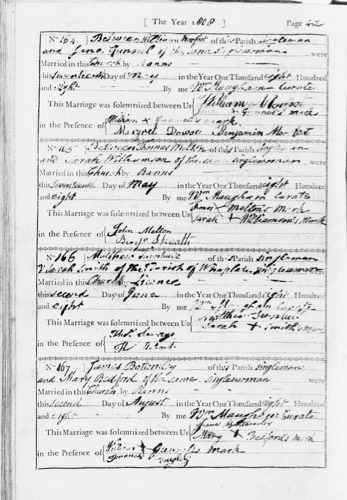 [ The Year 1808 ] Page 42
No 164. Between William of this Parish Singleman
and Jane Gunnel of the same Singlewoman
Married in this Church by Banns
this Seventeenth Day of May in the Year One Thousand eight Hundred
and eight By me Wm Maugham Curate
This Marriage was solemnized between Us William
Gunnel's mark
in the Presence of mark
Benjamin
No 165 Between Thomas Melton of this Singleman
and Sarah Williamson of the same Singlewoman
Married in this Church by Banns
this Seventeenth Day of May in the Year One Thousand eight Hundred
and eight By me Wm Maugham Curate
This Marriage was solemnized between Us Melton's Mark
Sarah + Williamson's Mark
in the Presence of John Melton
No 166 Mathew of this Parish Singleman
& Sarah Smith of the Parish of Whaplode Singlewoman
Married in this Church by Licence
this Second Day of June in the Year One Thousand eight Hundred
and eight By me Curate
This Marriage was solemnized between Us
Sarah + Smith's
in the Presence of Thos
No 167 James of this Parish Singleman
and Mary Bedford of the same Singlewoman
Married in this Church by Banns
this Second Day of August in the Year One Thousand eight Hundred
and eight By me Wm Maugham Curate
This Marriage was solemnized between Us James
Mary + Bedford's Mark
in the Presence of William + Gunnel's mark